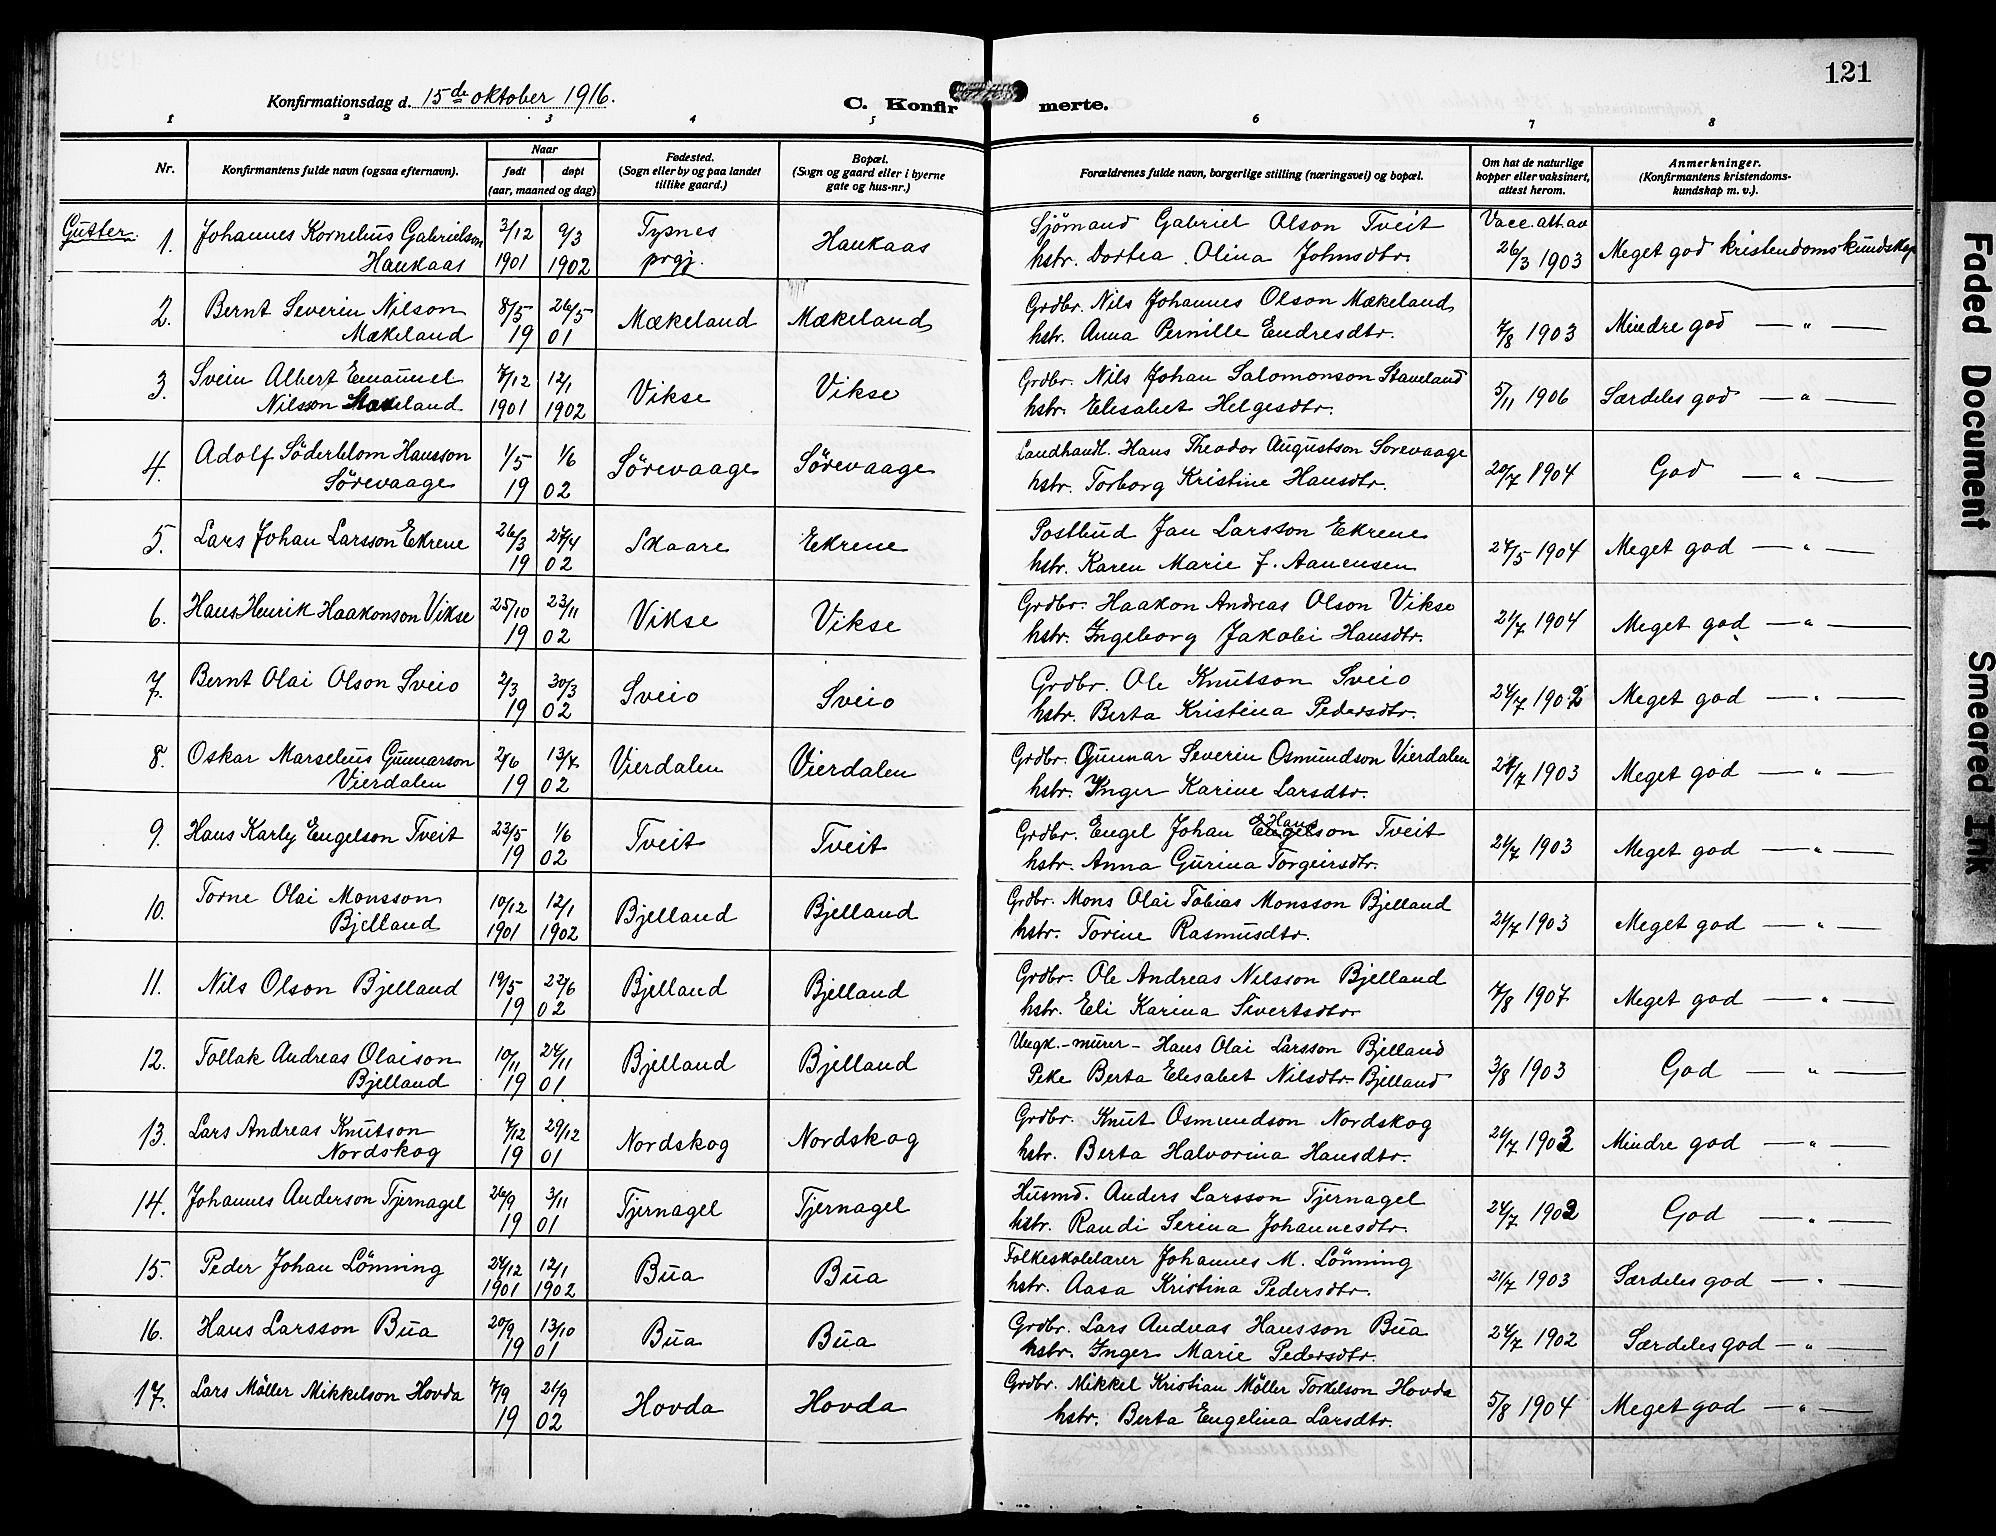 121
Konfirmationsdag d. 15de oktober 1916.
C. Konfirmerte.
1 2 3 4 5 6 7 8
Nr.
Konfirmantens fulde navn (ogsaa efternavn).
Naar
født døpt
(aar, maaned og dag)
Fødested.
(Sogn eller by og paa landet
tillike gaard.)
Bopæl.
(Sogn og gaard eller i byerne
gate og hus-nr.)
Forældrenes fulde navn, borgerlige stilling (næringsvei) og bopæl.
Om hat de naturlige
kopper eller vaksinert,
attest herom.
Anmerkninger.
(Konfirmantens kristendoms-
kundskap m. v.).
Gutter.
1. Johannes Kornelius Gabrielson 3/12 9/3 Tysnes Haukaas Sjømand Gabriel Olson Tveit Vacc. att. av
Haukaas 1901 1902 prgj. hstr. Dortea Olina Johnsdtr. 26/3 1903 Meget god kristendomskundskap
2. Bernt Severin Nilson 8/5 26/5 Mækeland Mækeland Grdbr. Nils Johannes Olson Mækeland
Mækeland 19 01 hstr. Anna Pernille Endresdtr. 7/8 1903 Mindre god — " —
3. Svein Albert Emanuel 7/12 12/1 Vikse Vikse Grdbr. Nils Johan Salomonson Staveland
Nilsson Staveland 1901 1902 hstr. Elesabet Helgesdtr. 5/11 1906 Særdeles god — " —
4. Adolf Söderblom Hansson 1/5 1/6 Sørevaage Sørevaage Landhandl. Hans Theodor Augustson Sorevaage
Sørevaage 19 02 hstr. Torborg Kristine Hansdtr. 20/7 1904 God — " —
5. Lars Johan Larsson Ekrene 26/3 27/4 Skaare Ekrene Postbud Jan Larsson Ekrene
19 02 hstr. Karen Marie f. Aanensen 24/5 1904 Meget god — " —
6. Hans Henrik Haakonson Vikse 25/10 23/11 Vikse Vikse Grdbr. Haakon Andreas Olson Vikse
19 02 hstr. Ingeborg Jakobi Hansdtr. 21/7 1904 Meget god — " —
7. Bernt Olai Olson Sveio 2/3 30/3 Sveio Sveio Grdbr. Ole Knutson Sveio
19 02 hstr. Berta Kristina Pedersdtr. 24/7 1902 Meget god — " —
8. Oskar Marselius Gunnarson 2/6 13/7 Vierdalen Vierdalen Grdbr. Gunnar Severin Osmundson Vierdalen
Vierdalen 19 02 hstr. Inger Karine Larsdtr. 24/7 1903 Meget god — " —
9. Hans Karly Engelson Tveit 23/5 1/6 Tveit Tveit Grdbr. Engel Johan Hansson Tveit
19 02 hstr. Anna Gurina Torgeirsdtr. 24/7 1903 Meget god — " —
10. Torne Olai Monsson 10/12 12/1 Bjelland Bjelland Grdbr. Mons Olai Tobias Monsson Bjelland
Bjelland 1901 1902 hstr. Torine Rasmusdtr. 24/7 1903 Meget god — " —
11. Nils Olson Bjelland 19/5 22/6 Bjelland Bjelland Grdbr. Ole Andreas Nilsson Bjelland
19 02 hstr. Eli Karina Sivertsdtr 7/8 1907 Meget god — " —
12. Tollak Andreas Olaison 10/11 24/11 Bjelland Bjelland Ungk.-murer- Hans Olai Larsson Bjelland
Bjelland 19 01 Peke Berta Elesabet Nilsdtr. Bjelland 3/8 1903 God — " —
13. Lars Andreas Knutson 7/12 29/12 Nordskog Nordskog Grdbr. Knut Osmundson Nordskog
Nordskog 19 01 hstr. Berta Halvorina Hansdtr. 24/7 1903 Mindre god — " —
14. Johannes Anderson Tjernagel 26/9 3/11 Tjernagel Tjernagel Husmd. Anders Larsson Tjernagel
19 01 hstr. Randi Serina Johannesdtr. 24/7 1902 God — " —
15. Peder Johan Lönning 24/12 12/1 Bua Bua Folkeskolelærer Johannes M. Lönning
1901 1902 hstr. Aasa Kristina Pedersdtr. 21/7 1903 Særdeles god — " —
16. Hans Larsson Bua 20/9 13/10 Bua Bua Grdbr. Lars Andreas Hansson Bua
19 01 hstr. Inger Marie Pedersdtr. 24/7 1902 Særdeles god — " —
17. Lars Möller Mikkelson Hovda 7/9 21/9 Hovda Hovda Grdbr. Mikkel Kristian Möller Torkelson Hovda
19 02 hstr. Berta Engelina Larsdtr. 5/8 1904 Meget god — " —
Faded Document
Smeared Ink